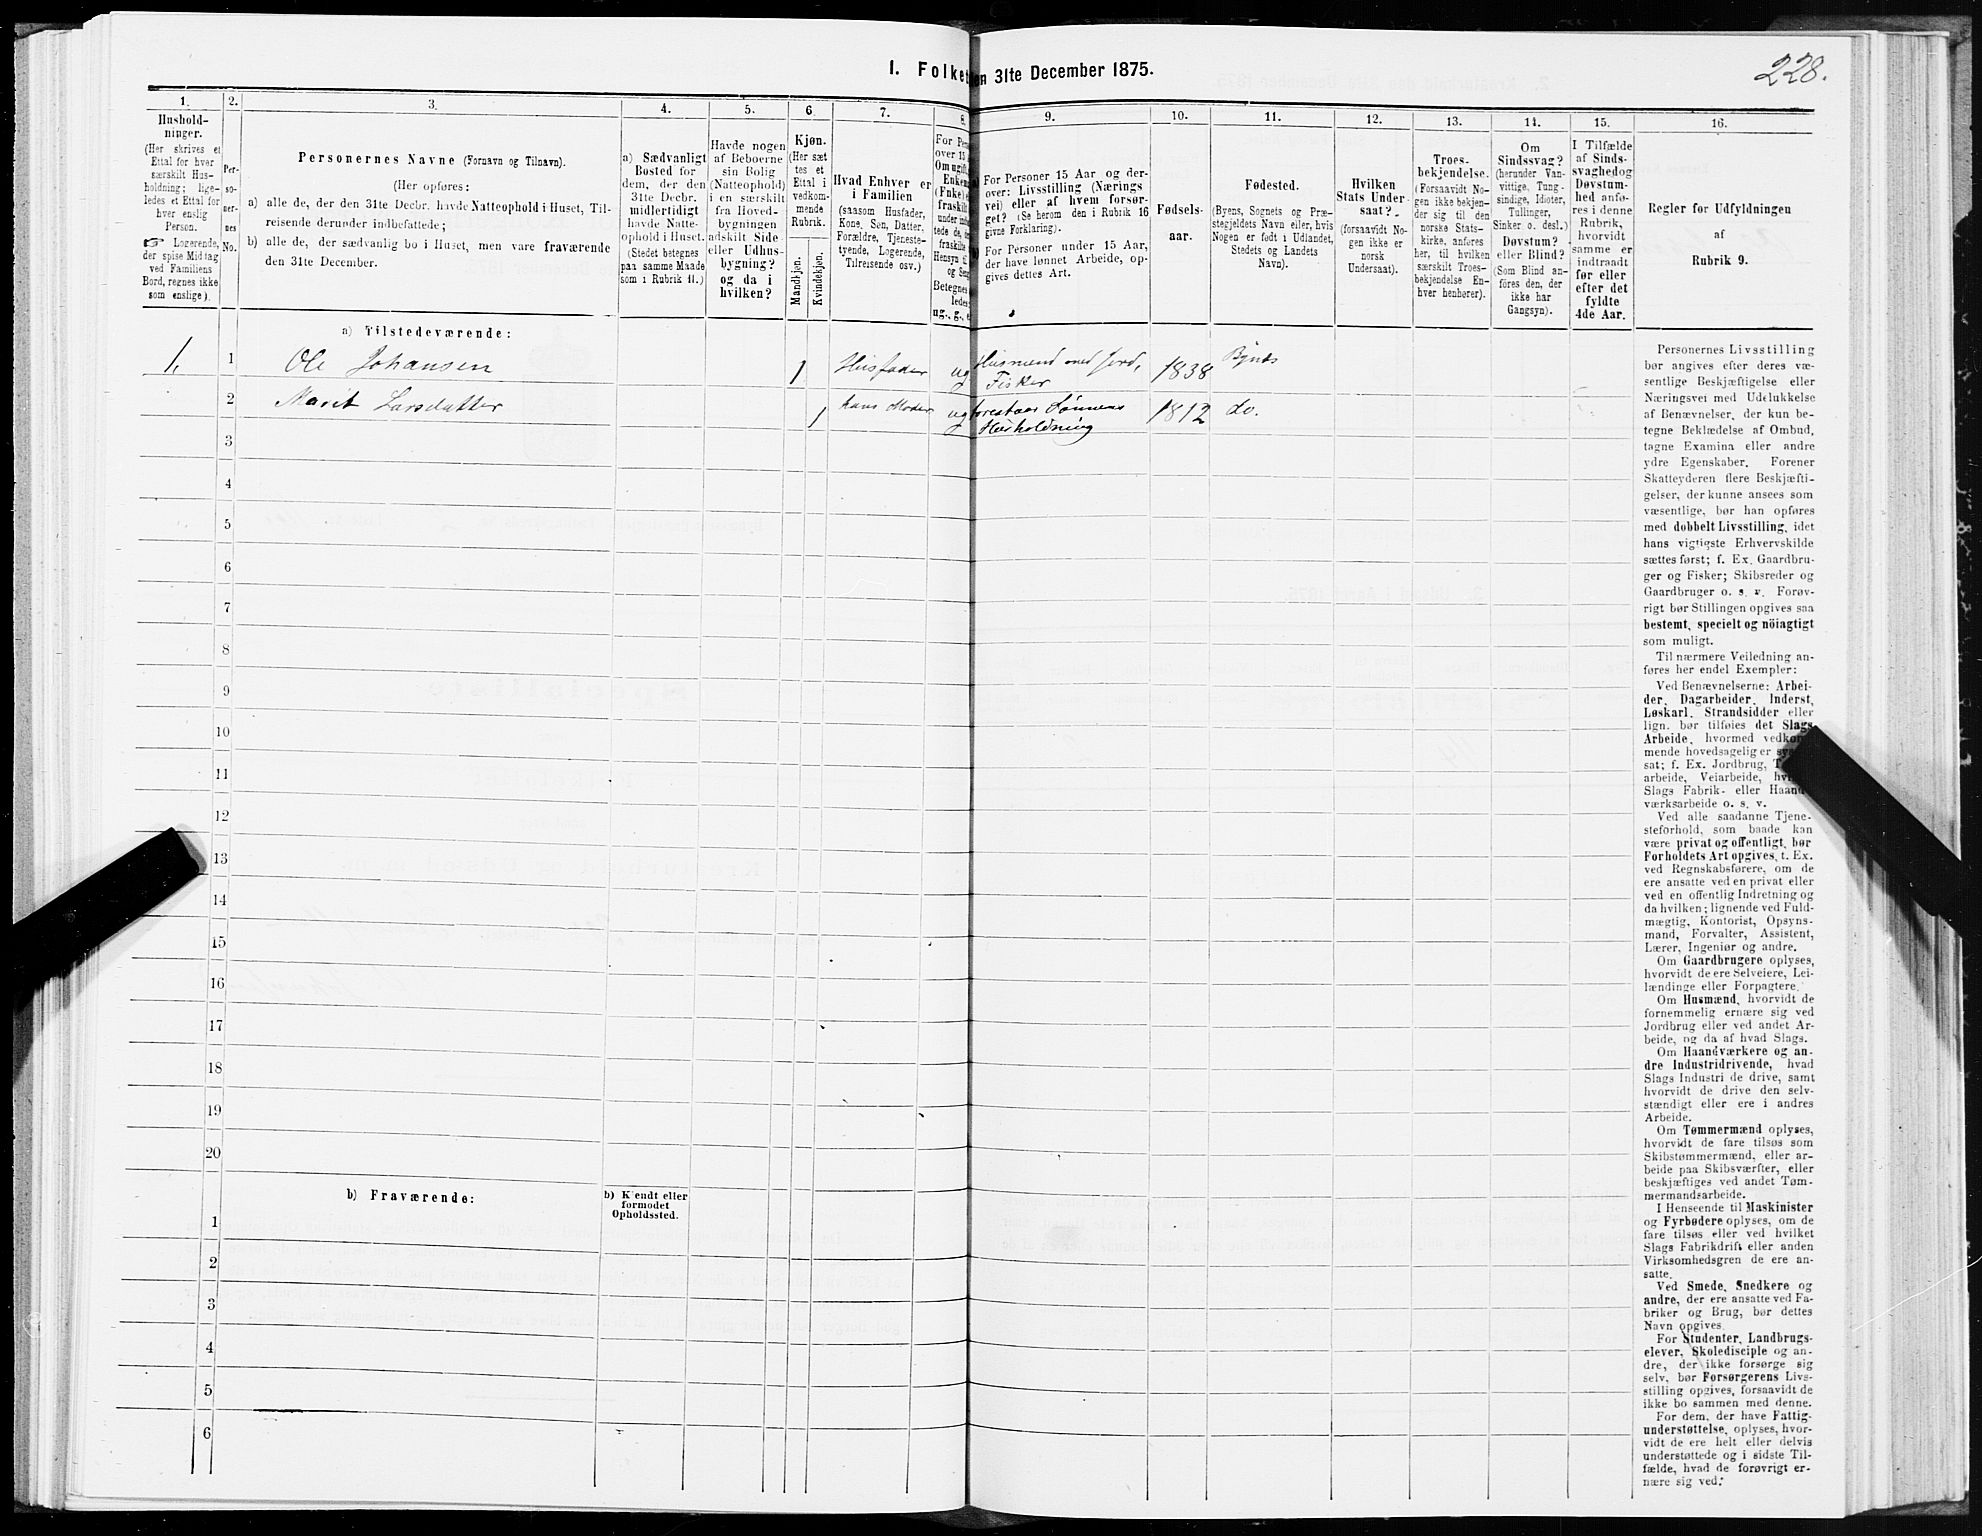 228.
I. Folket
en 31te December 1875.
1.
2.
3.
4.
5.
6
7.
8.
9.
10.
11.
12.
13.
14.
15.
16.
Hushold-
ninger.
(Her skrives et
Ettal for hver
særskilt Hus-
holdning; lige-
ledes et Ettal for
hver enslig
Person.
☞ Logerende,
der spise Middag
ved Familiens
Bord, regnes ikke
som enslige).
Per-
so-
ner-
nes
No.
Personernes Navne (Fornavn og Tilnavn).
(Her opføres:
a) alle de, der den 31te Decbr. havde Natteophold i Huset, Til-
reisende derunder indbefattede;
b) alle de, der sædvanlig bo i Huset, men vare fraværende
den 31te December.
a) Sædvanligt
Bosted for
dem, der den
31te Decbr.
midlertidigt
havde Natte-
ophold i Huset.
(Stedet betegnes
paa samme Maade
som i Rubrik 11.)
Havde nogen
af Beboerne
sin Bolig
(Natteophold)
i en særskilt
fra Hoved-
bygningen
adskilt Side-
eller Udhus-
bygning?
og da i
hvilken?
Kjøn.
(Her sæt-
tes et
Ettal i
vedkom-
mende
Rubrik.
Mandkjøn.
Kvindekjøn.
Hvad Enhver er
i Familien
(saasom Husfader,
Kone, Søn, Datter,
Forældre, Tjeneste-
tyende, Logerende,
Tilreisende osv.)
For Pers
over 15 A
Om ugift,
Enkem
(Fnke) e
fraskilt
under ind
tede de, de
fraskilte
Hensyn ti
og Seng
Betegnes
ledes:
ug., g., e
For Personer 15 Aar og der-
over: Livsstilling (Nærings
vei) eller af hvem forsør-
get? (Se herom den i Rubrik 16
givne Forklaring).
For Personer under 15 Aar,
der have lønnet Arbeide, op-
gives dettes Art.
Fødsels-
aar.
Fødested.
(Byens, Sognets og Præ-
stegjeldets Navn eller, hvis
Nogen er født i Udlandet,
Stedets og Landets
Navn).
Hvilken
Stats Under-
saat?
(forsaavidt No-
gen ikke er
norsk
Undersaat).
Troes-
bekjendelse.
(Forsaavidt No-
gen ikke bekjen-
der sig til den
norske Stats-
kirke, anføres
her, til hvilken
særskilt Troes-
bekjendelse En-
hver henhører).
Om
Sindssvag?
(herunder Van-
vittige, Tung-
sindige, Idioter,
Tullinger,
Sinker o. desl.)
Døvstum?
eller Blind?
(Som Blind an-
føres den, der
ikke har
Gangsyn).
I Tilfælde
af Sinds-
svaghed og
Døvstum-
hed anfø-
res i denne
Rubrik,
hvorvidt
samme er
indtraadt
før eller
efter det
fyldte
4de Aar.
Regler for Udfyldningen
af
Rubrik 9.
a) Tilstedeværende:
1. 1 Ole Johansen 1 Husfader ug Husmand med Jord, 1838 Bynæs
Fisker
2 Marit Larsdatter 1 hans Moder ug forestaar Sønnens 1812 do.
Husholdning
3
4
5
6
7
8
9
10
11
12
13
14
15
16
17
18
19
20
b) Fraværende:
b) Kendt eller
formodet
Opholdssted.
1
2
3
4
5
6
Personernes Livsstilling
bør angives efter deres væ-
sentlige Beskjæftigelse eller
Næringsvei med Udelukkelse
af Benævnelser, der kun be-
tegne Beklædelse af Ombud,
tagne Examina eller andre
ydre Egenskaber. Forener
Skatteyderen flere Beskjæfti-
gelser, der kunne ansees som
væsentlige, bør han opføres
med dobbelt Livsstilling, idet
hans vigtigste Erhvervskilde
sættes først; f. Ex. Gaardbru-
ger og Fisker; Skibsreder og
Gaardbruger o. s. v. Forøv-
rigt bør Stillingen opgives saa
bestemt, specielt og nöiagtigt
som muligt.
Til nærmere Veiledning an-
føres her endel Exempler:
Ved Benævnelserne: Arbei-
der, Dagarbeider, Inderst,
Løskarl, Strandsidder eller
lign. bør tilføies det Slags
Arbeide, hvormed vedkom-
mende hovedsagelig er syssel-
sat; f. Ex. Jordbrug, T
arbeide, Veiarbeide, hvil
Slags Fabrik- eller Haand-
værksarbeide o. s. v.
Ved alle saadanne Tjene-
steforhold, som baade kan
være privat og offentligt, bør
Forholdets Art opgives, t. Ex.
ved Regnskabsførere, om de
ere ansatte ved en privat eller
ved en offentlig Indretning og
da hvilken; lignende ved Fuld-
mægtig, Kontorist, Opsyns-
mand, Forvalter, Assistent,
Lærer, Ingeniør og andre.
Om Gaardbrugere oplyses,
hvorvidt de ere Selveiere, Lei-
lændinge eller Forpagtere.
Om Husmænd, hvorvidt de
fornemmelig ernære sig ved
Jordbrug eller ved andet Ar-
beide, og da af hvad Slags.
Om Haandværkere og an-
dre Industridrivende, hvad
Slags Industri de drive, samt
hvorvidt de drive den selv-
stændigt eller ere i andres
Arbeide.
Om Tømmermænd oplyses,
hvorvidt de fare tilsøs som
Skibstømmermænd, eller ar-
beide paa Skibsværfter, eller
beskjæftiges ved andet Tøm-
mermandsarbeide.
I Henseende til Maskinister
og Fyrbødere oplyses, om de
fare tilsøs eller ved hvilket
Slags Fabrikdrift eller anden
Virksomhedsgren de ere an-
satte.
Ved Smede, Snedkere og
andre, der ere ansatte ved Fa-
briker og Brug, bør dettes
Navn opgives.
For Studenter, Landbrugs-
elever, Skoledisciple og an-
dre, der ikke forsørge sig
selv, bør Forsørgerens Livs-
stilling opgives, forsaavidt de
ikke bo sammen med denne.
For dem, der have Fattig-
understøttelse, oplyses, hvor-
vidt de ere helt eller delvis
understøttede og i sidste Til-
fælde, hvad de forøvrigt er-
nære sig ved.